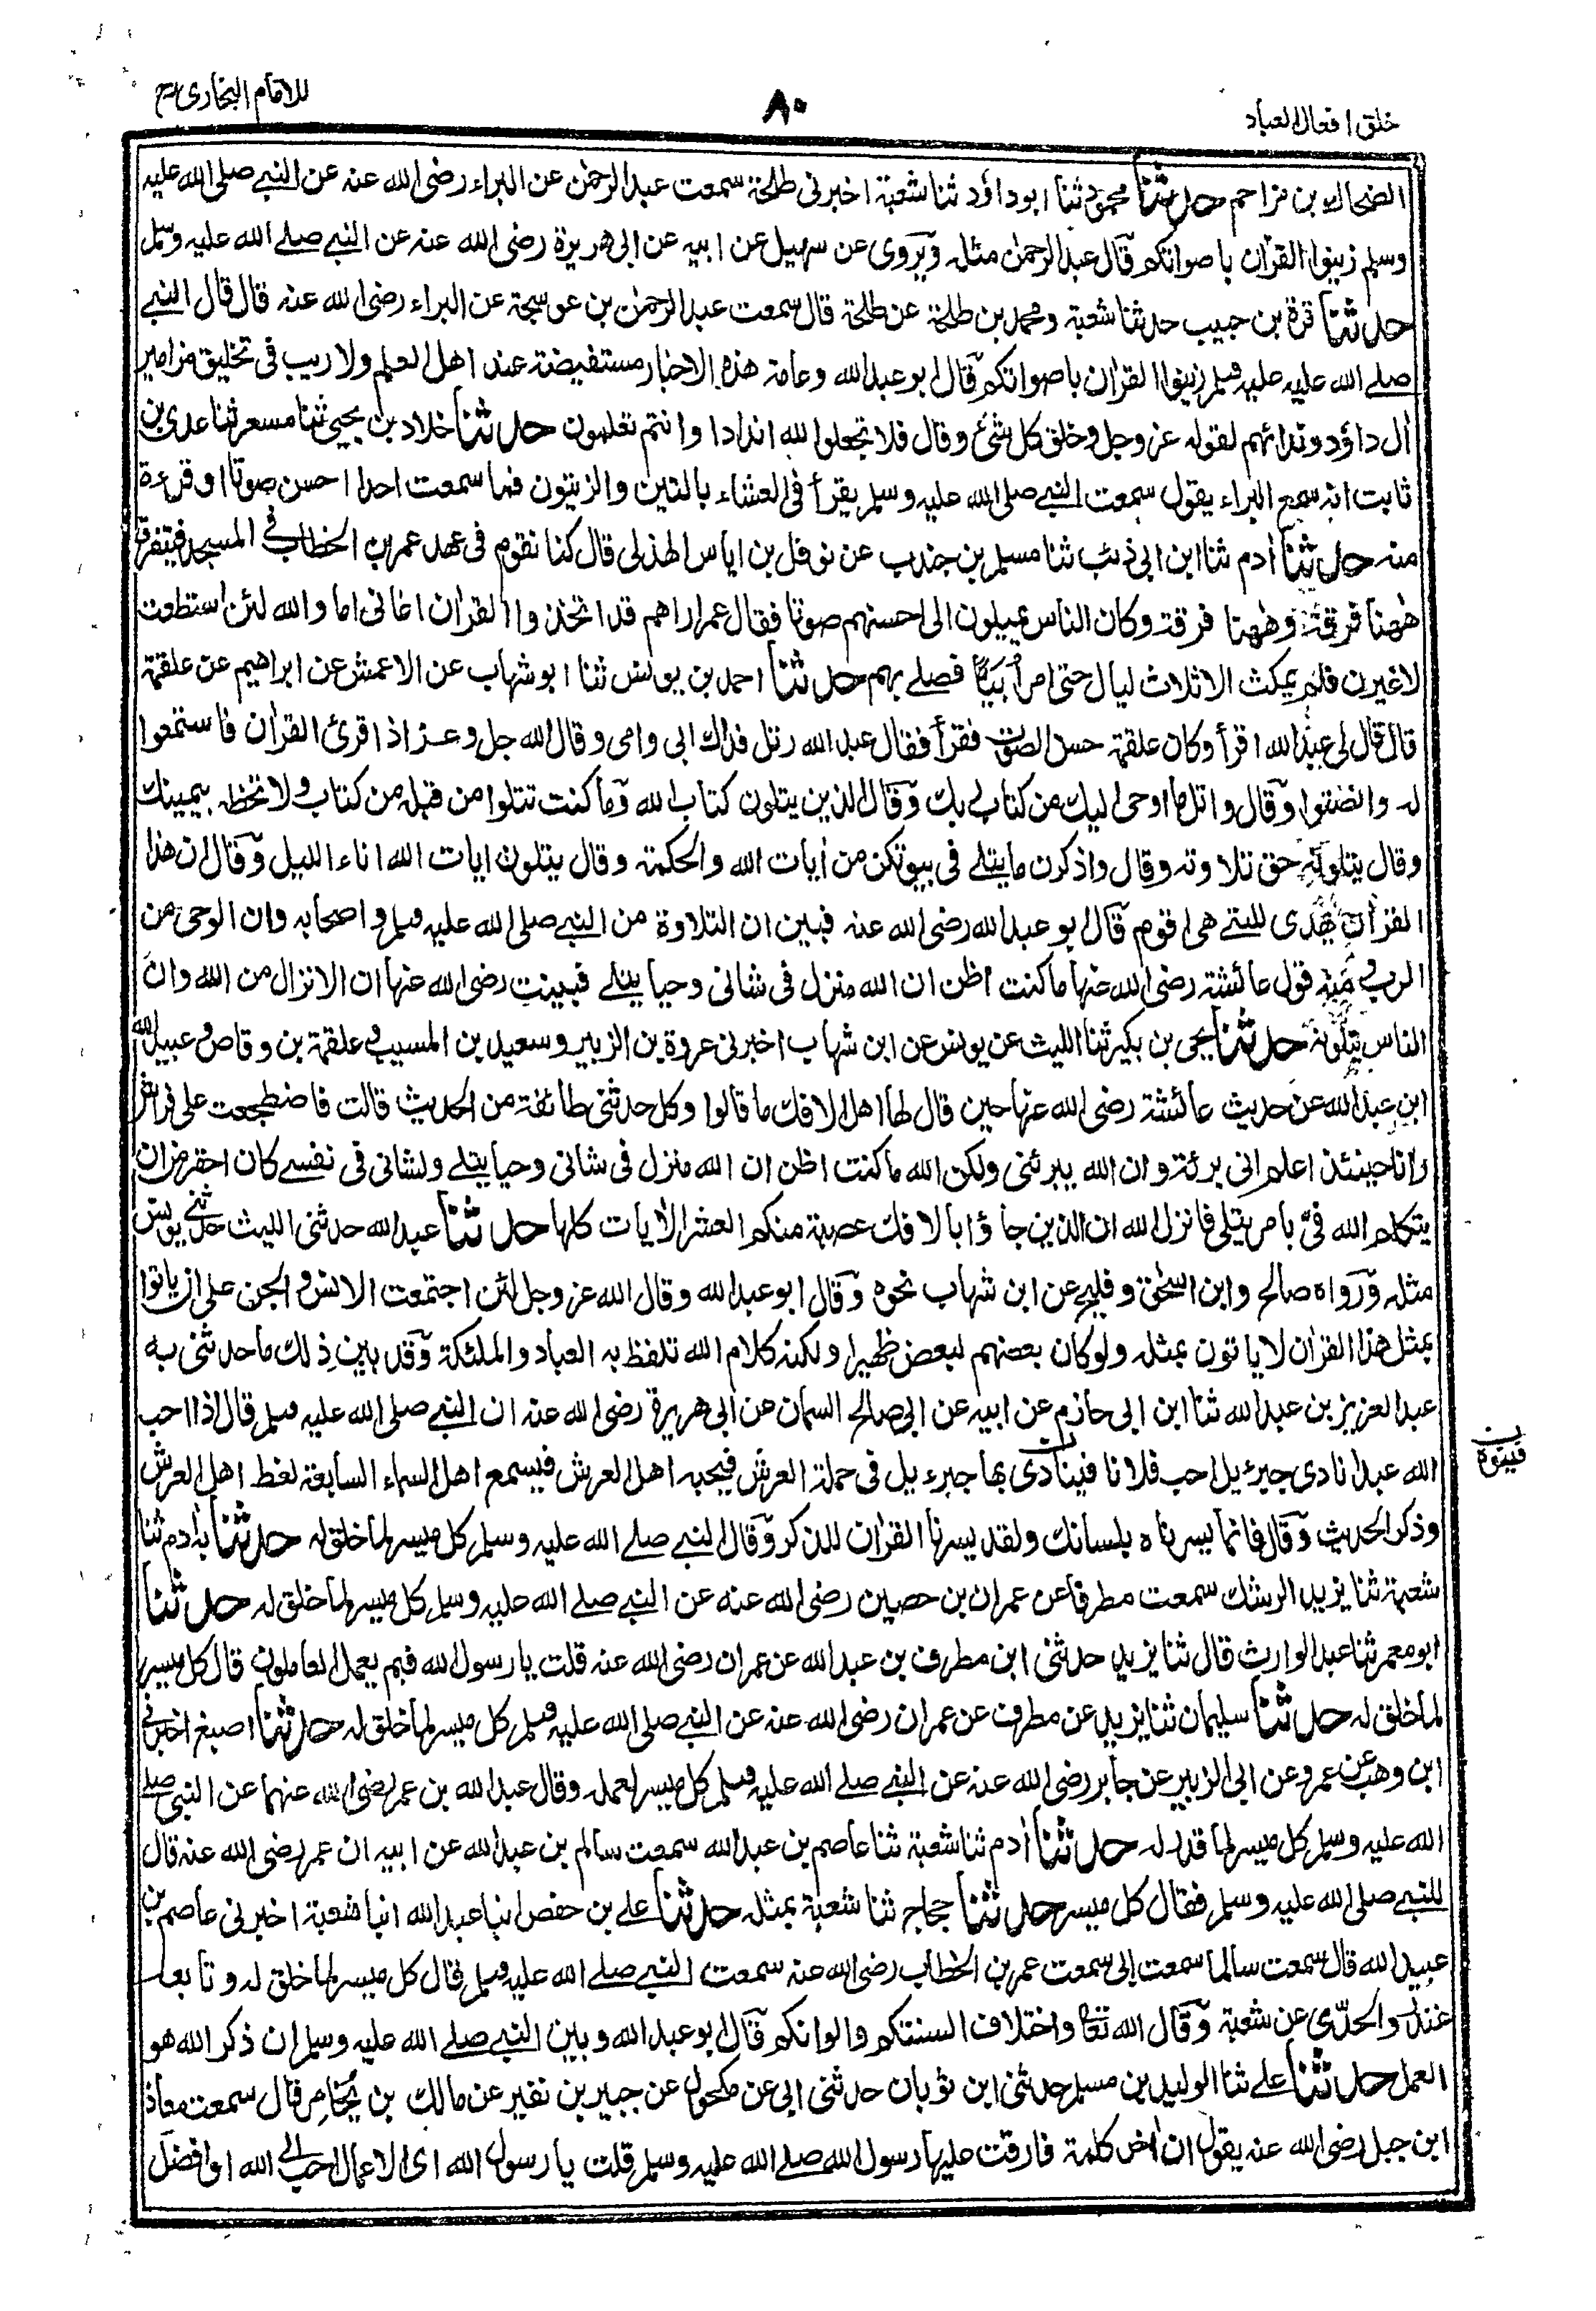 خلق افعال العباد
٨٠
للامام البخاری رح
الضحاك بن مزاحم حدثنا محمود ثنا ابو داؤد ثنا شعبة اخبرنی طلحة سمعت عبد الرحمٰن عن البراء رضی الله عنه عن النبے صلی الله علیه
وسلم زینوا القرٰان باصواتکم قال عبد الرحمٰن مثله ویروی عن سهیل عن ابیه عن ابی هریرة رضی الله عنه عن النبے صلے الله علیه وسلم
حدثنا قرة بن حبیب حدثنا شعبة ومحمد بن طلحة عن طلحة قال سمعت عبد الرحمٰن بن عوسجة عن البراء رضی الله عنه قال قال النبے
صلے الله علیه علیه وسلم زینوا القرٰان باصواتکم قال ابو عبد الله وعامة هذه الاخبار مستفیضة عند اهل العلم ولا ریب فی تخلیق مزامیر
اٰل داؤد وندائهم لقوله عز وجل وخلق کل شئ وقال فلا تجعلوا لله اندادا وانتم تعلمون حدثنا خلاد بن یحیی ثنا مسعر ثنا عدی بن
ثابت انه سمع البراء یقول سمعت النبے صلی الله علیه وسلم یقرأ فی العشاء بالتین والزیتون فما سمعت احدا احسن صوتا او قرءة
منه حدثنا اٰدم ثنا ابن ابی ذئب ثنا مسلم بن جندب عن نوفل بن ایاس الهذلی قال کنا نقوم فی عهد عمر بن الخطاب فی المسجد فیتفرق
هٰهنا فرقة وهٰهنا فرقة وکان الناس یمیلون الی احسنهم صوتا فقال عمر اراهم قد اتخذوا القرٰان اغانی اما والله لئن استطعت
لاغیرن فلم یمکث الا ثلاث لیال حتی امر ابیا فصلے بهم حدثنا احمد بن یونس ثنا ابو شهاب عن الاعمش عن ابراهیم عن علقمة
قال قال لی عبد الله اقرأ وکان علقمة حسن الصوت فقرأ فقال عبد الله رتل فداك ابی وامی وقال الله جل وعز اذا قرئ القرٰان فاستمعوا
له وانصتوا وقال واتل ما اوحی الیك من کتاب ربك وقال الذین یتلون کتاب الله وما کنت تتلوا من قبله من کتاب ولا تخطه بیمینك
وقال یتلونه حق تلاوته وقال واذکرن ما یتلے فی بیوتکن من اٰیات الله والحکمة وقال یتلون اٰیات الله اناء اللیل وقال ان هذا
القرٰان یهدی للتے هی اقوم قال ابو عبد الله رضی الله عنه فبین ان التلاوة من النبے صلی الله علیه وسلم واصحابه وان الوحی من
الرب ومنه قول عائشة رضی الله عنها ما کنت اظن ان الله منزل فی شانی وحیا یتلے فبینت رضی الله عنها ان الانزال من الله وان
الناس یتلونه حدثنا یحی بن بکیر ثنا اللیث عن یونس عن ابن شهاب اخبرنی عروة بن الزبیر وسعید بن المسیب وعلقمة بن وقاص وعبید الله
ابن عبد الله عن حدیث عائشة رضی الله عنها حین قال لها اهل الافك ما قالوا وکل حدثنی طائفة من الحدیث قالت فاضطجعت علی فراشی
وانا حینئذ اعلم انی برئة وان الله یبرئنی ولکن الله ما کنت اظن ان الله منزل فی شانی وحیا یتلے ولشانی فی نفسے کان احقر من ان
یتکلم الله فیَّ بامر یتلی فانزل الله ان الذین جاؤا بالافك عصبة منکم العشر الاٰیات کلها حدثنا عبد الله حدثنی اللیث حدثنی یونس
مثله ورواه صالح وابن اسحٰق وفلیح عن ابن شهاب نحوه وقال ابو عبد الله وقال الله عز وجل لئن اجتمعت الانس والجن علی ان یاتوا
بمثل هذا القرٰان لا یاتون بمثله ولو کان بعضهم لبعض ظهیرا ولکنه کلام الله تلفظ به العباد والملئکة وقد بین ذلك ما حدثنی به
عبد العزیز بن عبد الله ثنا ابن ابی حازم عن ابیه عن ابی صالح السمان عن ابی هریرة رضی الله عنه ان النبے صلی الله علیه وسلم قال اذا احب
الله عبدا نادی جبرئیل احب فلانا فینادی بها جبرءیل فی حملة العرش فیحبه اهل العرش فیسمع اهل السماء السابعة لغط اهل العرش
وذکر الحدیث وقال فانما یسرناه بلسانك ولقد یسرنا القرٰان للذکر وقال النبے صلے الله علیه وسلم کل میسر لما خلق له حدثنا به اٰدم ثنا
شعبة ثنا یزید الرشك سمعت مطرفا عن عمران بن حصین رضی الله عنه عن النبے صلے الله علیه وسلم کل میسر لما خلق له حدثنا
ابو معمر ثنا عبد الوارث قال ثنا یزید حدثنی ابن مطرف بن عبد الله عن عمران رضی الله عنه قلت یا رسول الله فیم یعمل العاملون قال کل میسر
لما خلق له حدثنا سلیمان ثنا یزید عن مطرف عن عمران رضی الله عنه عن النبے صلی الله علیه وسلم کل میسر لما خلق له حدثنا اصبغ اخبرنی
ابن وهب عن عمرو عن ابی الزبیر عن جابر رضی الله عنه عن النبے صلے الله علیه وسلم کل میسر لعمله وقال عبد الله بن عمر رضی الله عنهما عن النبی صلے
الله علیه وسلم کل میسر لما قدر له حدثنا اٰدم ثنا شعبة ثنا عاصم بن عبد الله سمعت سالم بن عبد الله عن ابیه ان عمر رضی الله عنه قال
للنبے صلی الله علیه وسلم فقال کل میسر حدثنا حجاج ثنا شعبة بمثله حدثنا علے بن حفص انبا عبد الله انبا شعبة اخبرنی عاصم بن
عبید الله قال سمعت سالما سمعت ابی سمعت عمر بن الخطاب رضی الله عنه سمعت النبے صلے الله علیه وسلم قال کل میسر لما خلق له وتابعه
غندر والجدّی عن شعبة وقال الله تعالی واختلاف السنتکم والوانکم قال ابو عبد الله وبین النبے صلے الله علیه وسلم ان ذکر الله هو
العمل حدثنا علے ثنا الولید بن مسلم حدثنی ابن ثوبان حدثنی ابی عن مکحول عن جبیر بن نفیر عن مالك بن یخامر قال سمعت معاذ
ابن جبل رضی الله عنه یقول ان اٰخر کلمة فارقت علیها رسول الله صلے الله علیه وسلم قلت یا رسول الله ای الاعمال احب الی الله او افضل